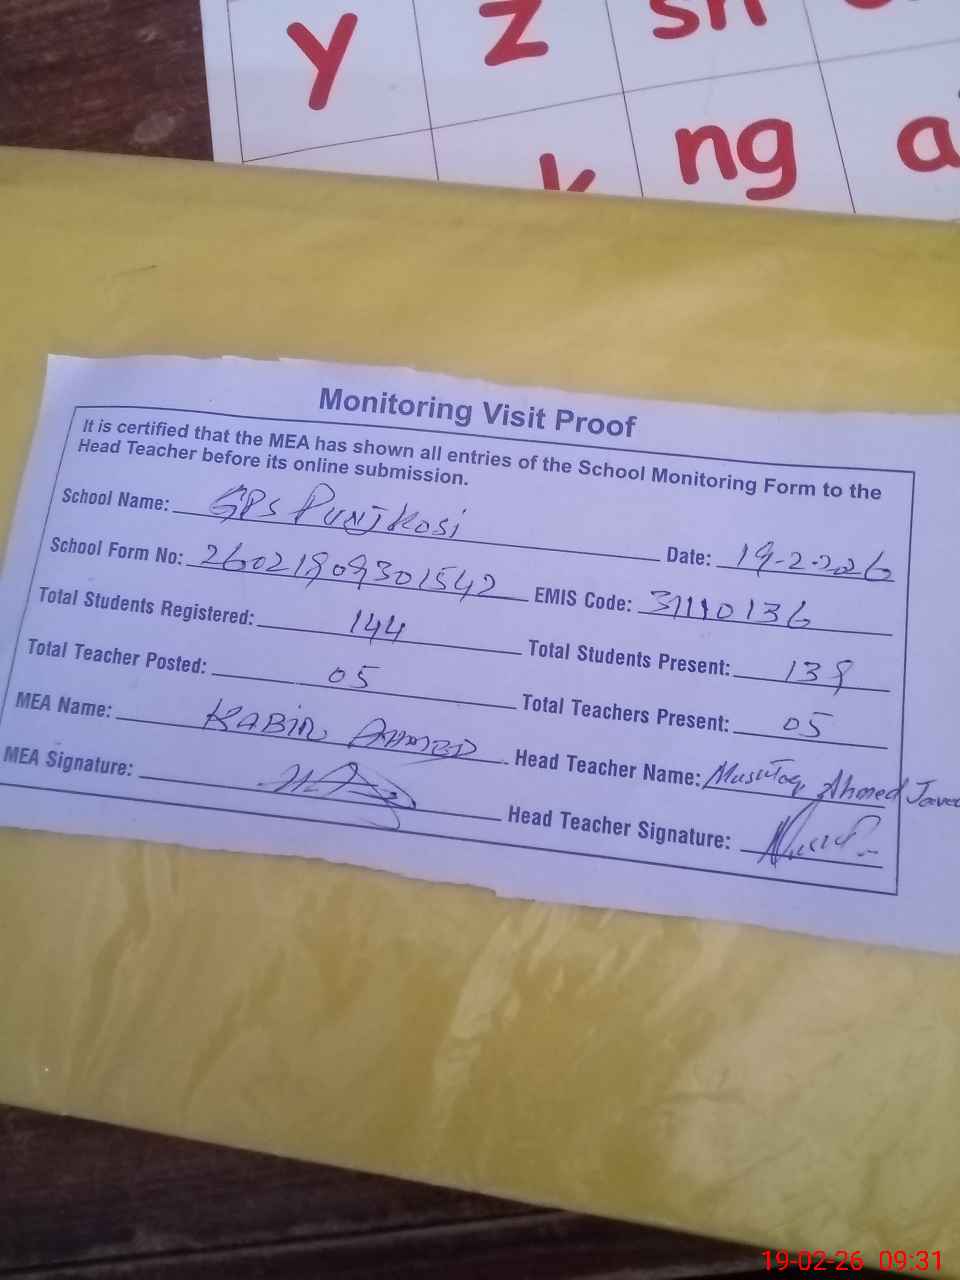 y z sh
k ng a
Monitoring Visit Proof
It is certified that the MEA has shown all entries of the School Monitoring Form to the
Head Teacher before its online submission.
School Name: GPS Punjkosi Date: 19-2-2026
School Form No: 26021909301542 EMIS Code: 31110136
Total Students Registered: 144 Total Students Present: 139
Total Teacher Posted: 05 Total Teachers Present: 05
MEA Name: KABIR AHMED Head Teacher Name: Mushtaq Ahmed Javed
MEA Signature: Head Teacher Signature:
19-02-26 09:31